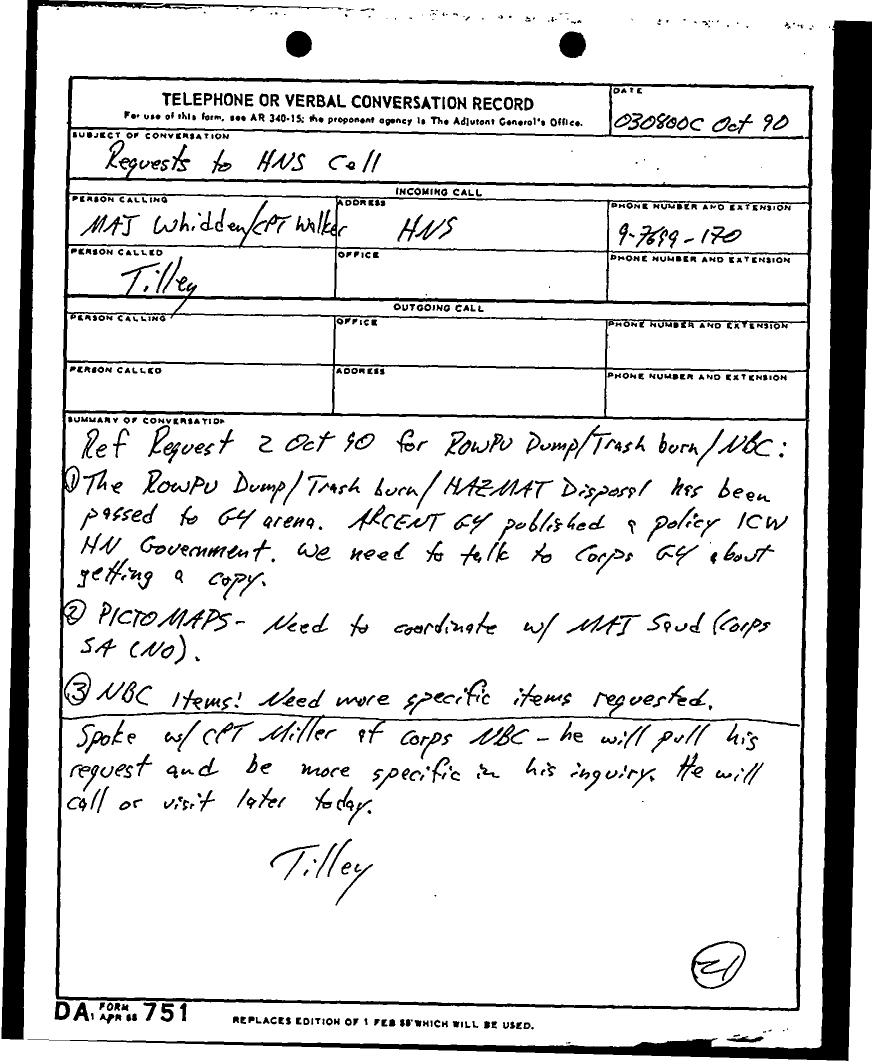 TELEPHONE OR VERBAL CONVERSATION RECORD
For use of this form, see AR 340-15; the proponent agency is The Adjutant General's Office.
DATE
030800C Oct 90
SUBJECT OF CONVERSATION
Requests to HNS Cell
INCOMING CALL
PERSON CALLING
MAJ Whidden/CPT Walker
ADDRESS
HNS
PHONE NUMBER AND EXTENSION
9-7699-170
PERSON CALLED
Tilley
OFFICE
PHONE NUMBER AND EXTENSION
OUTGOING CALL
PERSON CALLING
OFFICE
PHONE NUMBER AND EXTENSION
PERSON CALLED
ADDRESS
PHONE NUMBER AND EXTENSION
SUMMARY OF CONVERSATION
Ref Request 2 Oct 90 for ROWPU Dump/Trash burn/NBC:
① The ROWPU Dump/Trash burn/HAZMAT Disposal has been
passed to G4 arena. ARCENT G4 published a policy ICW
HN Government. We need to talk to Corps G4 about
getting a copy.
② PICTOMAPS- Need to coordinate w/ MAJ Saud (Corps
SA (NO).
③ NBC Items! Need more specific items requested.
Spoke w/ CPT Miller at Corps NBC - he will pull his
request and be more specific in his inquiry. He will
call or visit later today.
Tilley
21
DA FORM 751
1 APR 66
REPLACES EDITION OF 1 FEB 58 WHICH WILL BE USED.